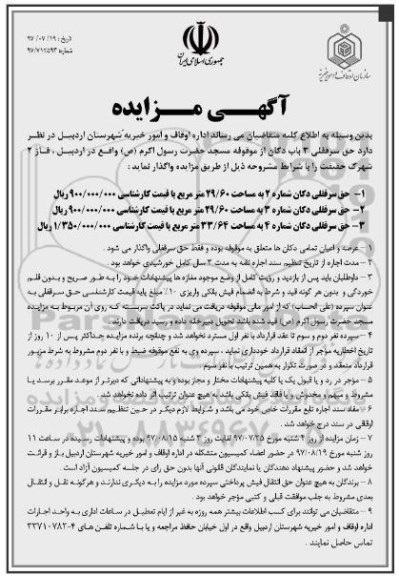 تاریخ : ۹۷/۰۷/۱۹
شماره ۹۷/۷۱۲۵۹۳
جمهوری اسلامی ایران
سازمان اوقاف و امور خیریه
آگهی مزایده
بدین وسیله به اطلاع کلیه متقاضیان می رساند اداره اوقاف و امور خیریه شهرستان اردبیل در نظر
دارد حق سرقفلی ۳ باب دکان از موقوفه مسجد حضرت رسول اکرم (ص) واقع در اردبیل ، فاز ۲
شهرک حقیقت را با شرایط مشروحه ذیل از طریق مزایده واگذار نماید :
۱- حق سرقفلی دکان شماره ۲ به مساحت ۲۹/۶۰ متر مربع با قیمت کارشناسی ۹۰۰/۰۰۰/۰۰۰ ریال
۲- حق سرقفلی دکان شماره ۳ به مساحت ۲۹/۶۰ متر مربع با قیمت کارشناسی ۹۰۰/۰۰۰/۰۰۰ ریال
۳- حق سرقفلی دکان شماره ۴ به مساحت ۳۳/۶۴ متر مربع با قیمت کارشناسی ۱/۳۵۰/۰۰۰/۰۰۰ ریال
۱- عرصه و اعیان تمامی دکان ها متعلق به موقوفه بوده و فقط حق سرقفلی واگذار می شود .
۲- مدت اجاره از تاریخ تنظیم سند اجاره نامه به مدت ۳ سال کامل خورشیدی خواهد بود .
۳- داوطلبان باید پس از بازدید و رویت کامل از وضع موجود مغازه ها پیشنهادات خود را به طور صریح و بدون قلم
خوردگی و بدون هر گونه قید و شرط به انضمام فیش بانکی واریزی ۱۰٪ مبلغ پایه قیمت کارشناسی حق سرقفلی به
عنوان سپرده (علی الحساب) که از امور مالی موقوفه دریافت می نماید در پاکت سربسته که روی آن مربوط به مزایده
مسجد حضرت رسول اکرم (ص) قید شده باشد تحویل دبیرخانه داده و رسید دریافت دارند.
۴- سپرده نفر دوم و سوم تا عقد قرارداد با نفر اول مسترد نخواهد شد و چنانچه برنده مزایده حداکثر پس از ۱۰ روز از
تاریخ اخطاریه موجر از انعقاد قرارداد خودداری نماید ، سپرده وی به نفع موقوفه ضبط و با نفر دوم مشروط به شرط مزبور
قرارداد منعقد و در صورت تکرار به همین ترتیب با نفر سوم
۵- موجر در رد و یا قبول یک یا کلیه پیشنهادات مختار و مجاز بوده و به پیشنهاداتی که دیرتر از موعد مقرر برسد یا
مشروط و مبهم و مخدوش و یا فاقد فیش بانکی باشد به هیچ عنوان ترتیب اثر داده نخواهد شد.
۶- مفاد سند اجاره تابع مقررات خاص خود می باشد و شرایط لازم دیگر در حین تنظیم سند اجاره برابر مقررات
اوقافی در سند درج خواهد شد.
۷- زمان مزایده از روز ۴ شنبه مورخ ۹۷/۰۷/۲۵ لغایت روز ۳ شنبه مورخ ۹۷/۰۸/۱۵ بوده و پیشنهادات رسیده در ساعت ۱۱
روز شنبه مورخ ۹۷/۰۸/۱۹ در حضور اعضاء کمیسیون متشکله در اداره اوقاف و امور خیریه شهرستان اردبیل باز و قرائت
خواهد شد و حضور پیشنهاد دهندگان یا نمایندگان قانونی آنها بدون حق رای در جلسه کمیسیون آزاد است .
۸- برندگان به هیچ عنوان حق انتقال فیش پرداختی سپرده مورد مزایده را به دیگری ندارند و هرگونه نقل و انتقال
بعدی مشروط به جلب موافقت قبلی و کتبی موجر خواهد بود .
۹- متقاضیان می توانند برای کسب اطلاعات بیشتر همه روزه به غیر از ایام تعطیل در ساعات اداری به واحد اجارات
اداره اوقاف و امور خیریه شهرستان اردبیل واقع در اول خیابان حافظ مراجعه و یا با شماره تلفن های ۴-۳۳۷۱۰۷۸۲
تماس حاصل نمایند .